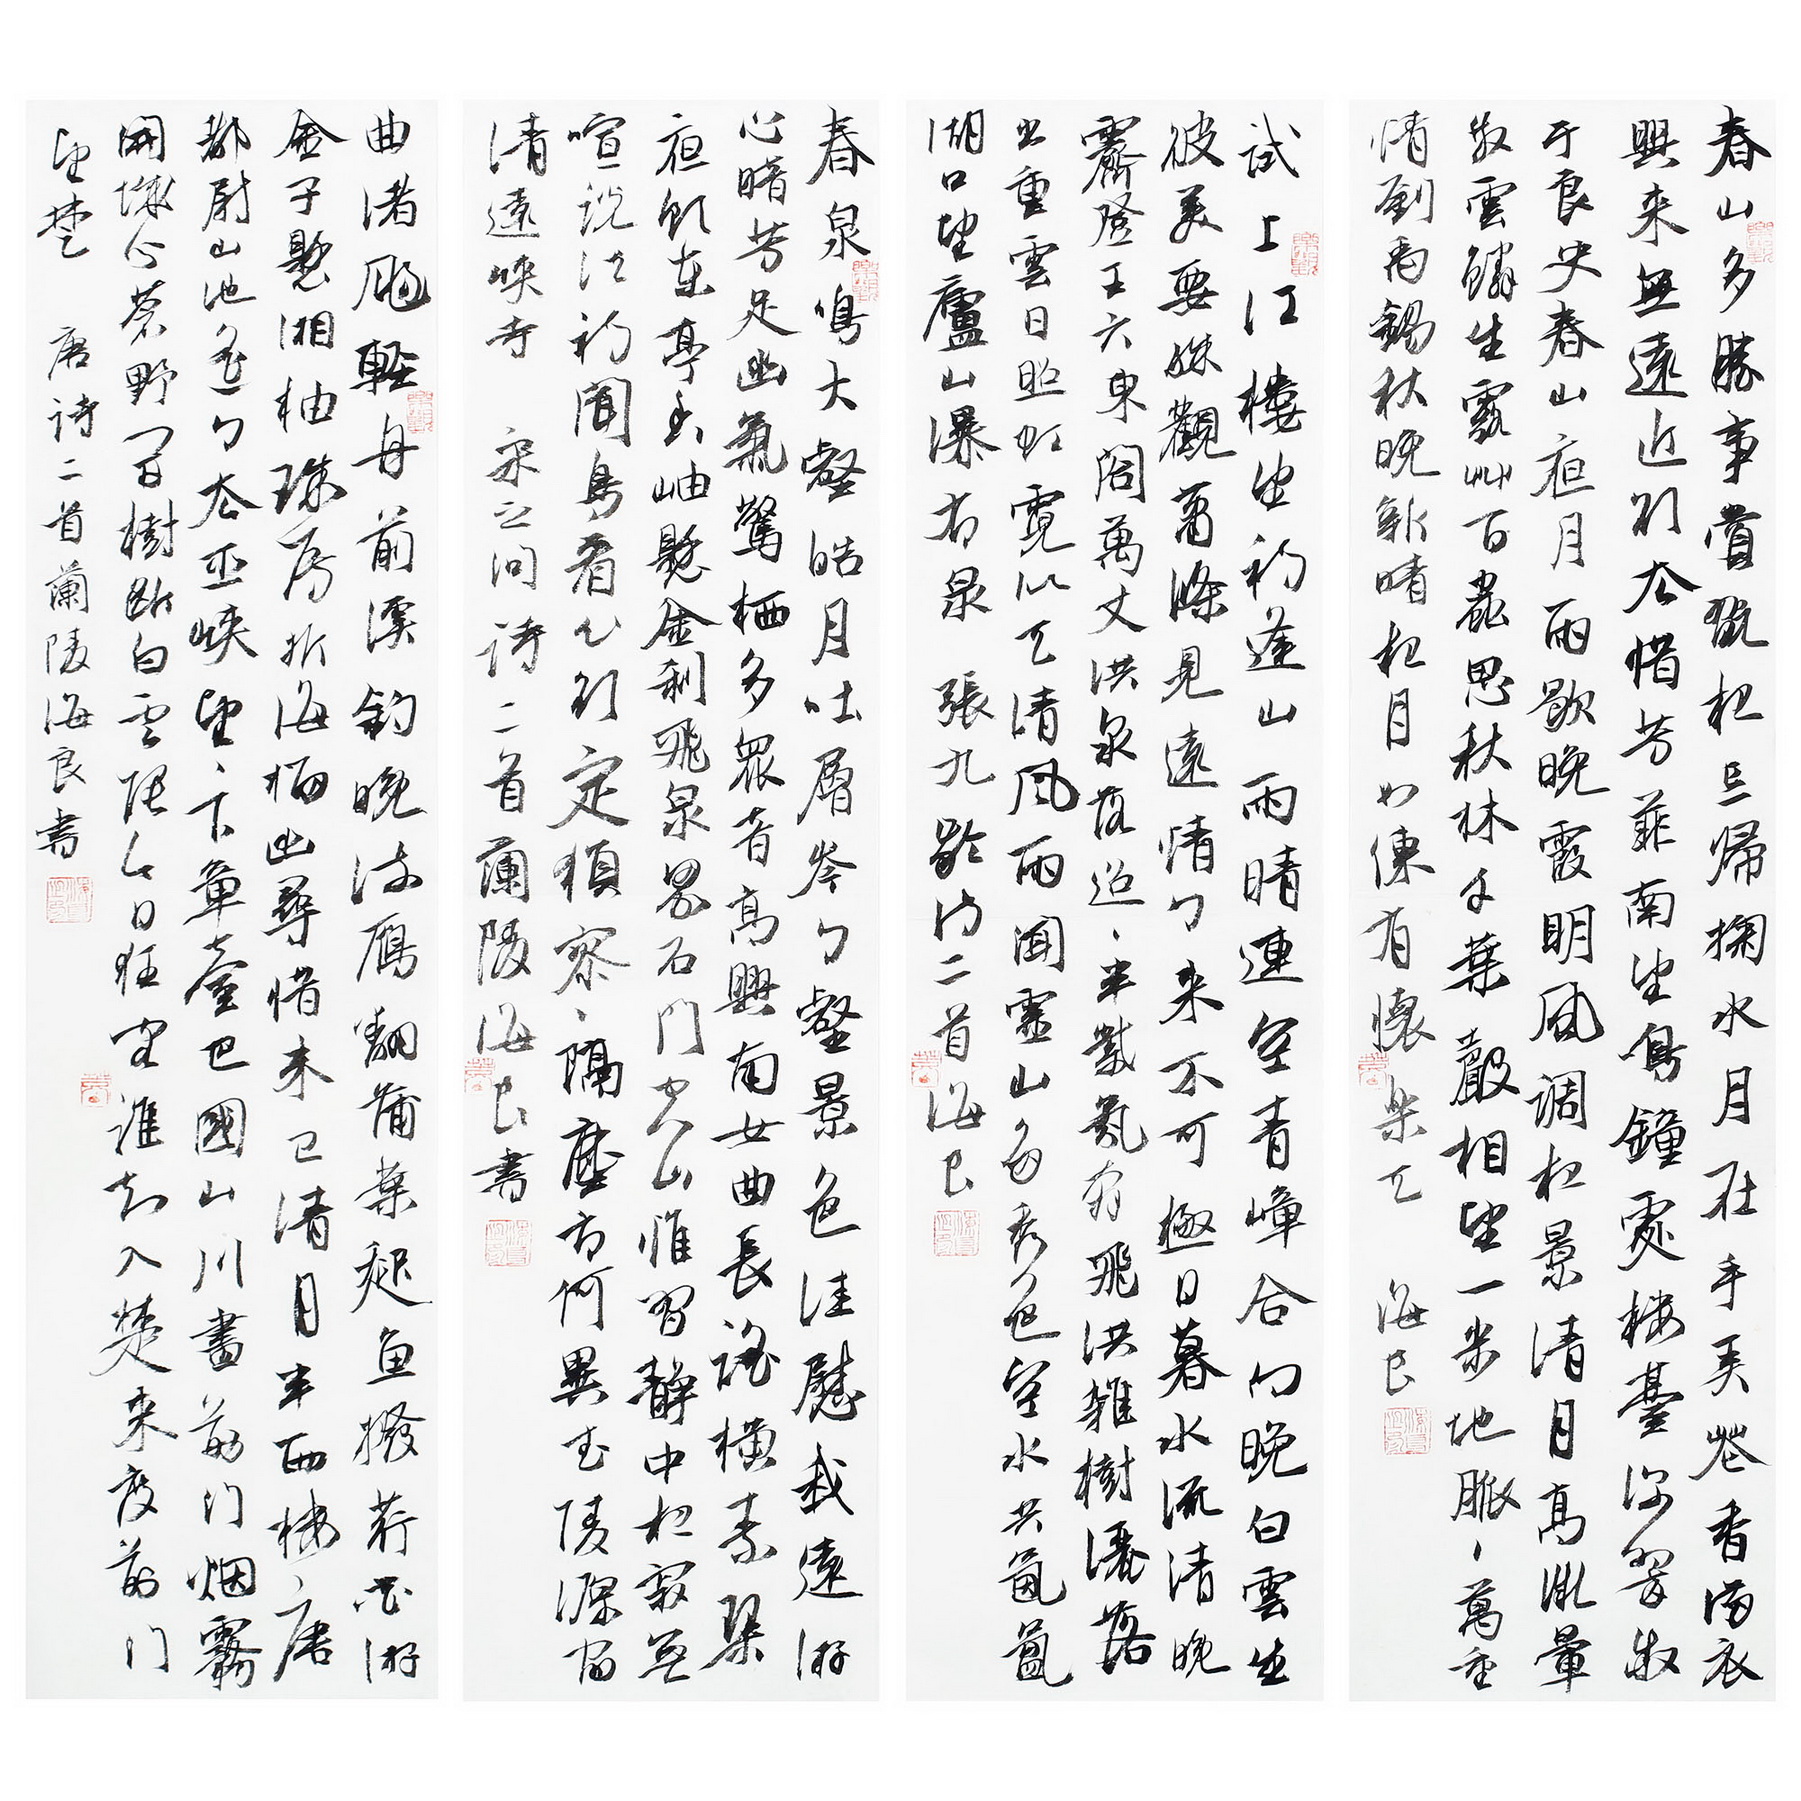 春山多勝事賞翫夜忘歸掬水月在手弄花香滿衣
興來無遠近欲去惜芳菲南望鳥鐘處樓臺深翠微
于良史春山夜月雨歇晚霞明風調夜景清月高微暈
散雲鱗生露艸百蟲思秋林千葉聲相望一步地脈、萬重
情劉禹錫秋晚新晴夜月如練有懷樂天 海良
試上江樓望初逢山雨晴連空青嶂合向晚白雲生
彼美要殊觀蕭條見遠情勹來不可極日暮水流清晚
霽登王六東閣萬丈洪泉落迢、半紫氛奔飛洪雜樹灑落
出重雲日照虹霓似天清風雨聞靈山多秀色空水共氤氳
湖口望廬山瀑布泉 張九齡詩二首海良
春泉鳴大壑皓月吐層岑勹壑景色佳慰我遠游
心暗芳足幽氣驚栖多眾音高興南山曲長謠橫素琴
夜飲東亭香岫懸金刹飛泉界石門空山惟習靜中夜寂無
喧說法初聞鳥看心欲定猿寂寥、隔塵市何異武陵源宿
清遠峽寺 宋之问詩二首蘭陵海良書
曲渚颺輕舟前溪釣晚流雁翻蒲葉起魚撥荇花游
金子懸湘柚珠房折海榴幽尋惜未已清月半西樓、唐
都尉山池遙勹去巫峽望、下章臺巴國山川盡荊門烟霧
開城分蒼野外樹斷白雲隈今日狂客誰知入楚來度荊門
望楚 唐詩二首蘭陵海良書